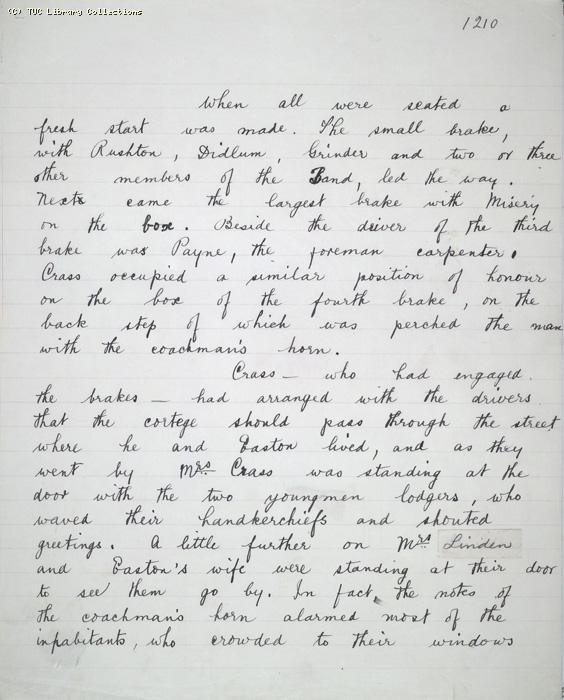 (C) TUC Library Collections
1210
When all were seated a
fresh start was made. The small brake,
with Rushton, Didlum, Grinder and two or three
other members of the Band, led the way.
Next came the largest brake with Misery
on the box. Beside the driver of the third
brake was Payne, the foreman carpenter.
Crass occupied a similar position of honour
on the box of the fourth brake, on the
back step of which was perched the man
with the coachman's horn.
Crass — who had engaged
the brakes — had arranged with the drivers
that the cortege should pass through the street
where he and Easton lived, and as they
went by Mrs Crass was standing at the
door with the two youngmen lodgers, who
waved their handkerchiefs and shouted
greetings. A little further on Mrs Linden
and Easton's wife were standing at their door
to see them go by. In fact, the notes of
the coachman's horn alarmed most of the
inhabitants, who crowded to their windows